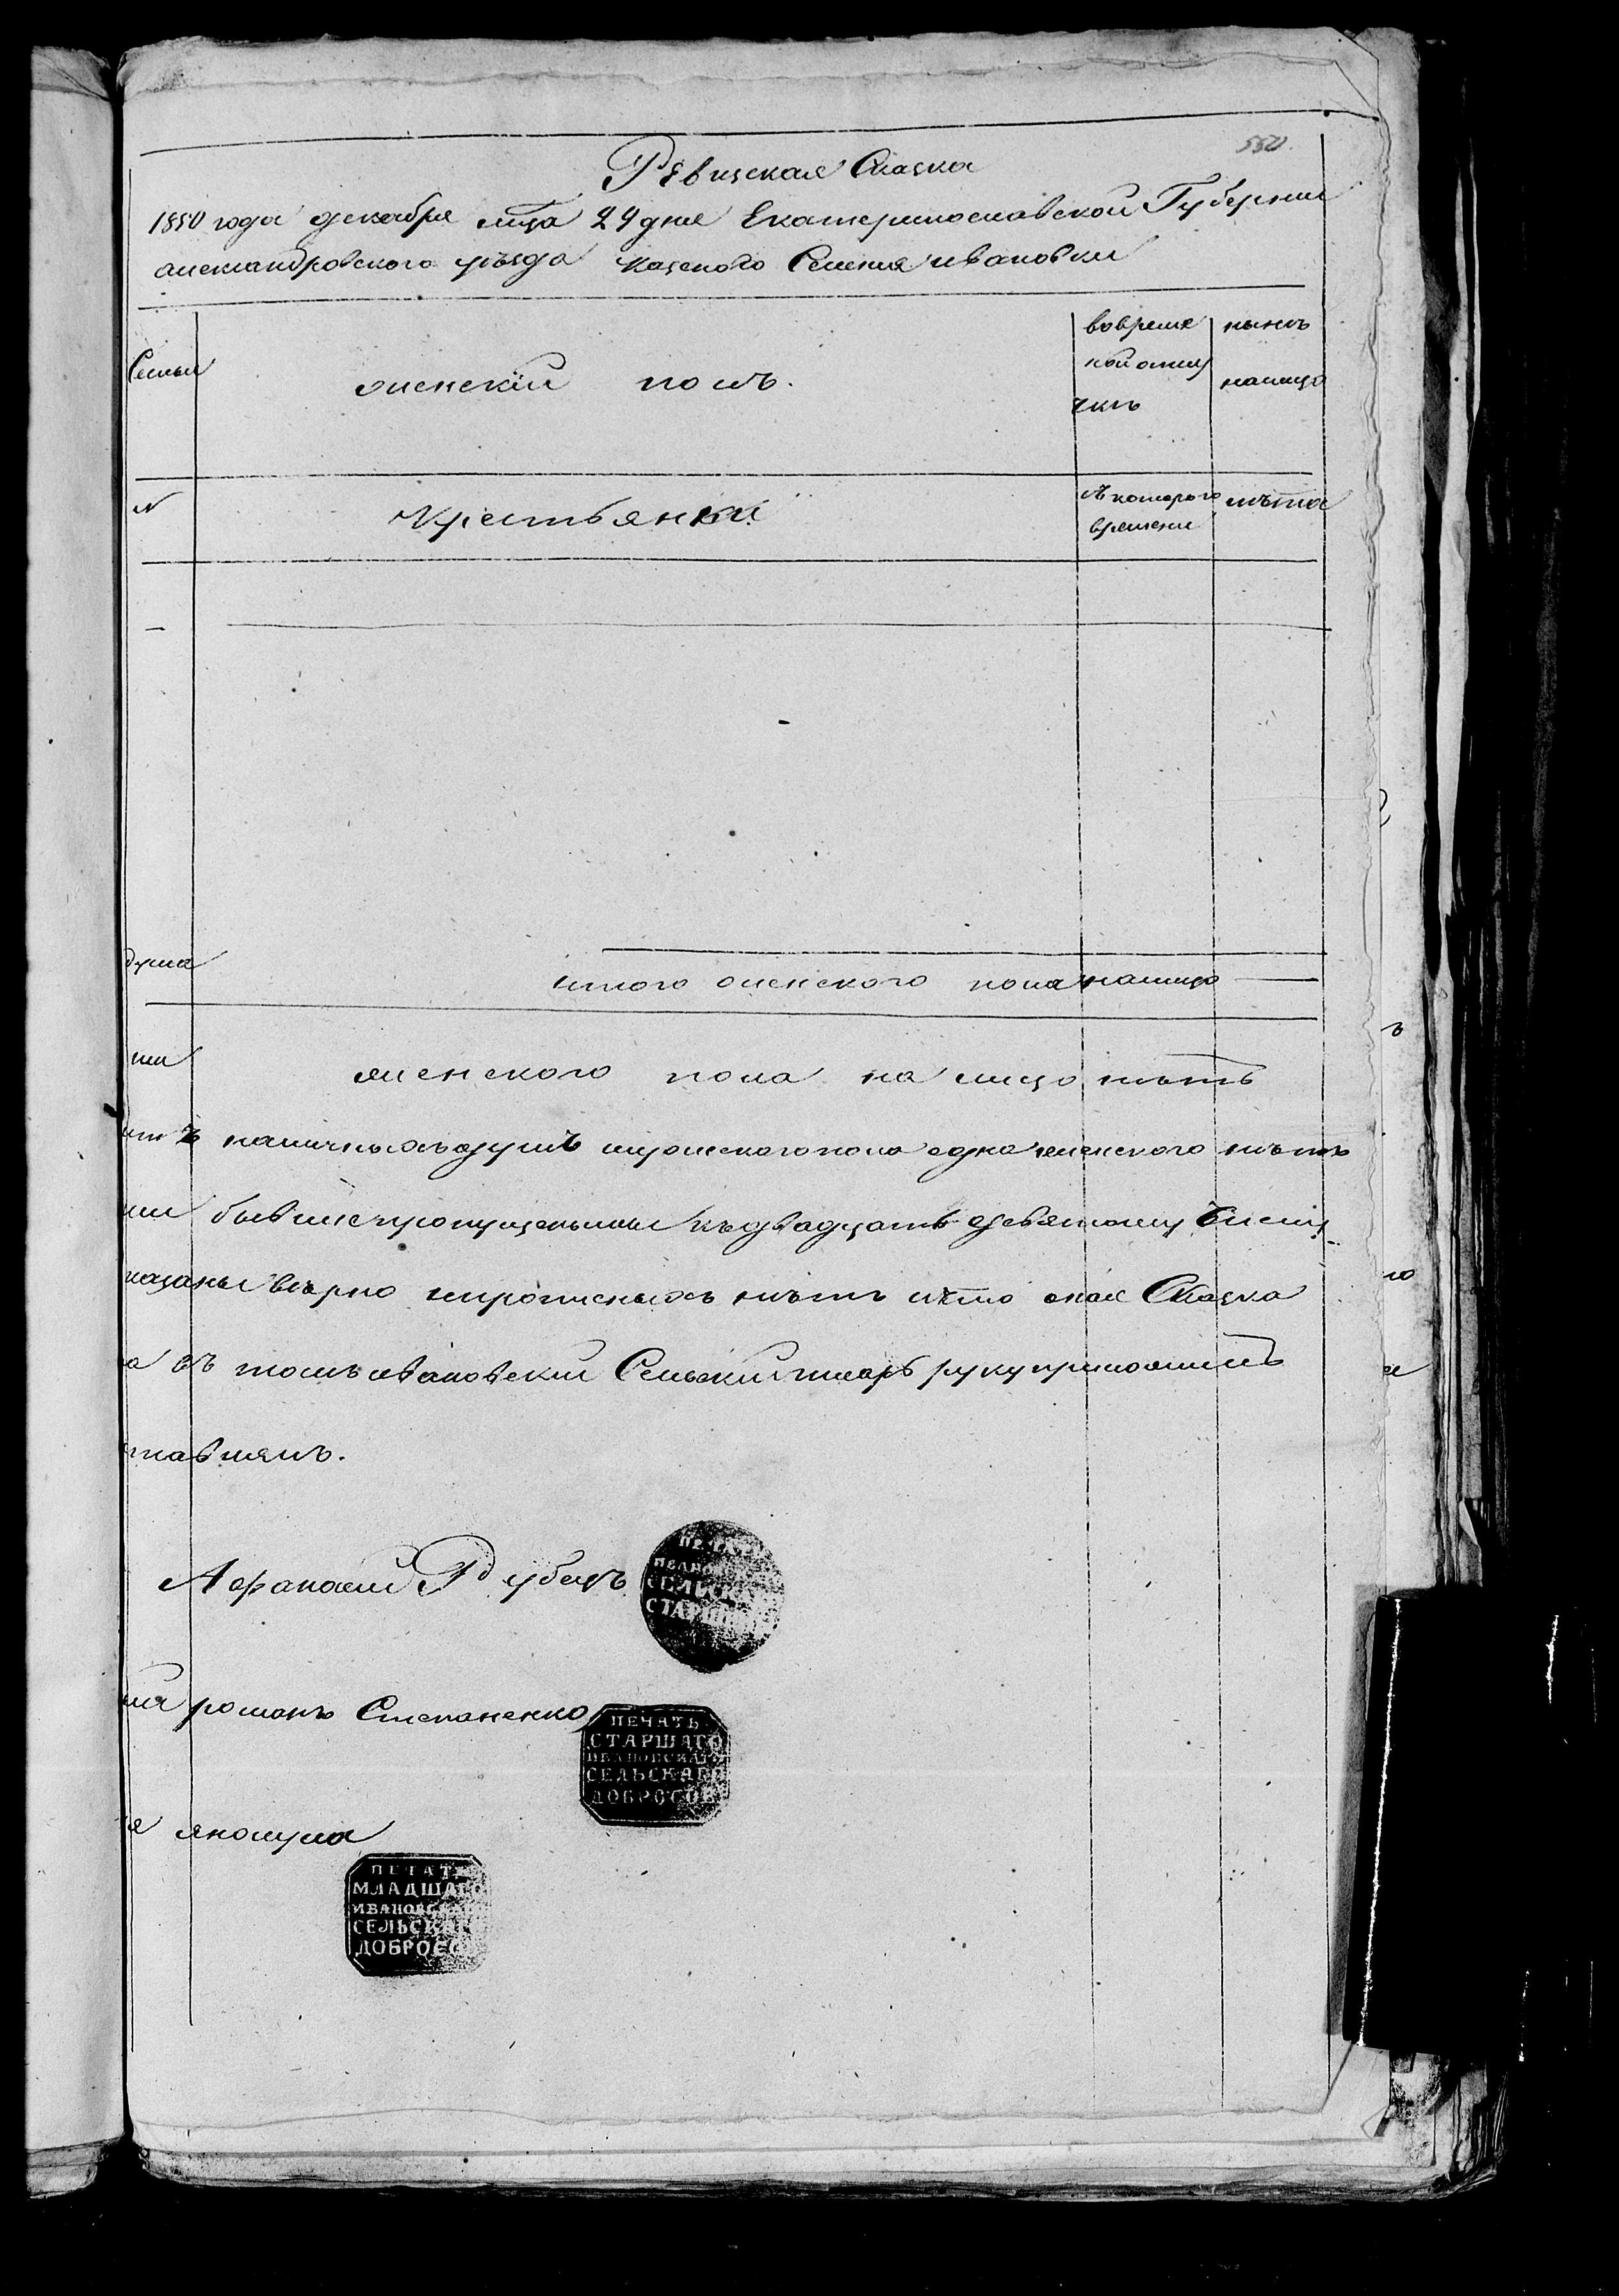 550.
Ревизская Сказка
1850 года декабря мца 29 дня Екатеринославской Губернии
александровского уѣзда казеного Селения ивановки
Семьи
женский полъ.
вовремя
ной отлу
чкѣ
нынѣ
налицо
N
Крестьянки
съ которого
времени
лѣта
душа
итого женского пола налицо
женского пола на лицо нѣтъ
наличныхъ душъ мужеского пола одна женского нѣтъ
бывшие пропущеными къ двадцать девятому числу
казаны вѣрно ипрописныхъ нѣтъ что оная Сказка
въ томъ ивановский Сельский писарь руку приложилъ
тавлялъ.
Афанасий Рубецъ
ПЕЧАТЬ
ИВАНО
СЕЛЬСКА
СТАРШИ
романъ Степаненко
ПЕЧАТЬ
СТАРШАГО
ИВАНОВСКАГО
СЕЛЬСКАГО
ДОБРОСОВ
ПЕЧАТЬ
МЛАДШАГО
ИВАНОВСКА
СЕЛЬСКАГ
ДОБРОСО